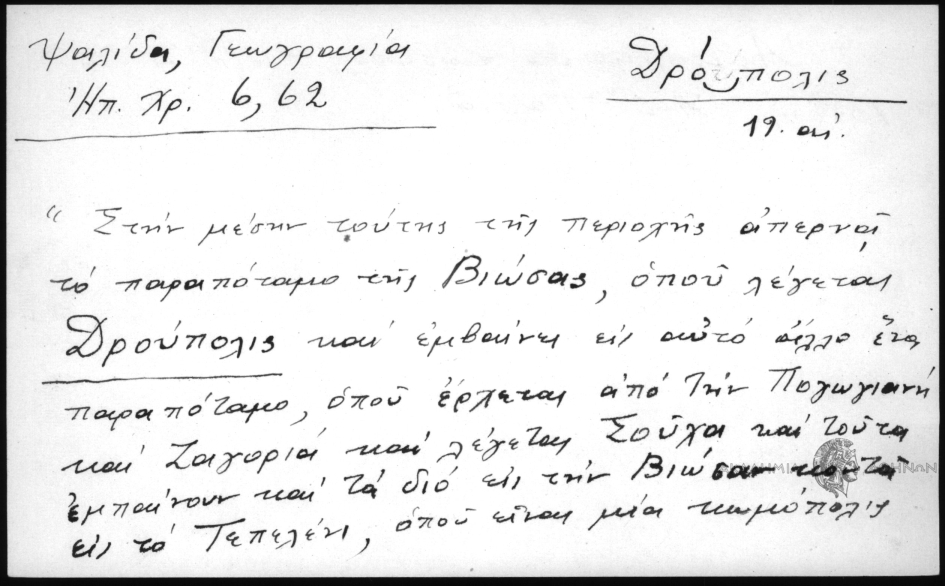 Ψαλίδα, Γεωγραφία
Ἠπ. Χρ. 6, 62
Δρούπολις
19. αἰ.
"Στήν μέσην τούτης τῆς περιοχῆς ἀπερνάῃ
τό παραπόταμο τῆς Βιώσας, ὁποῦ λέγεται
Δρούπολις καί ἐμβαίνει εἰς αὐτό ἄλλο ἕνα
παραπόταμο, ὁποῦ ἔρχεται ἀπό τήν Πογωγιανή
καί Ζαγοριά καί λέγεται Σοῦχα καί τοῦτα
ἐμπαίνουν καί τά διό εἰς τήν Βιώσαν κοντά
εἰς τό Τεπελένι, ὁποῦ εἶναι μία κωμόπολις